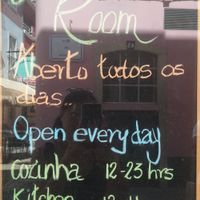 Room
Aberto todos os
dias
Open everyday
Cozinha 12-23 hrs
Kitchen